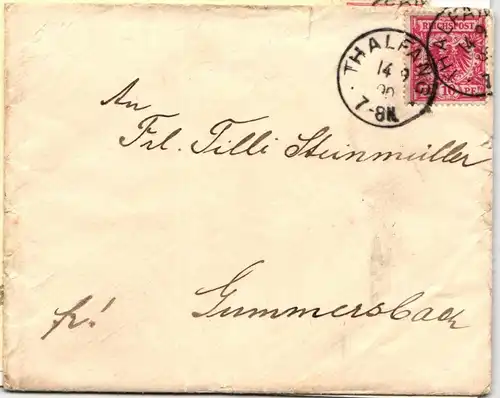 REICHSPOST
THALFANG
14 9
90
7-8N.
An
Frl. Tilli Steinmüller
Gummersbach
fr!